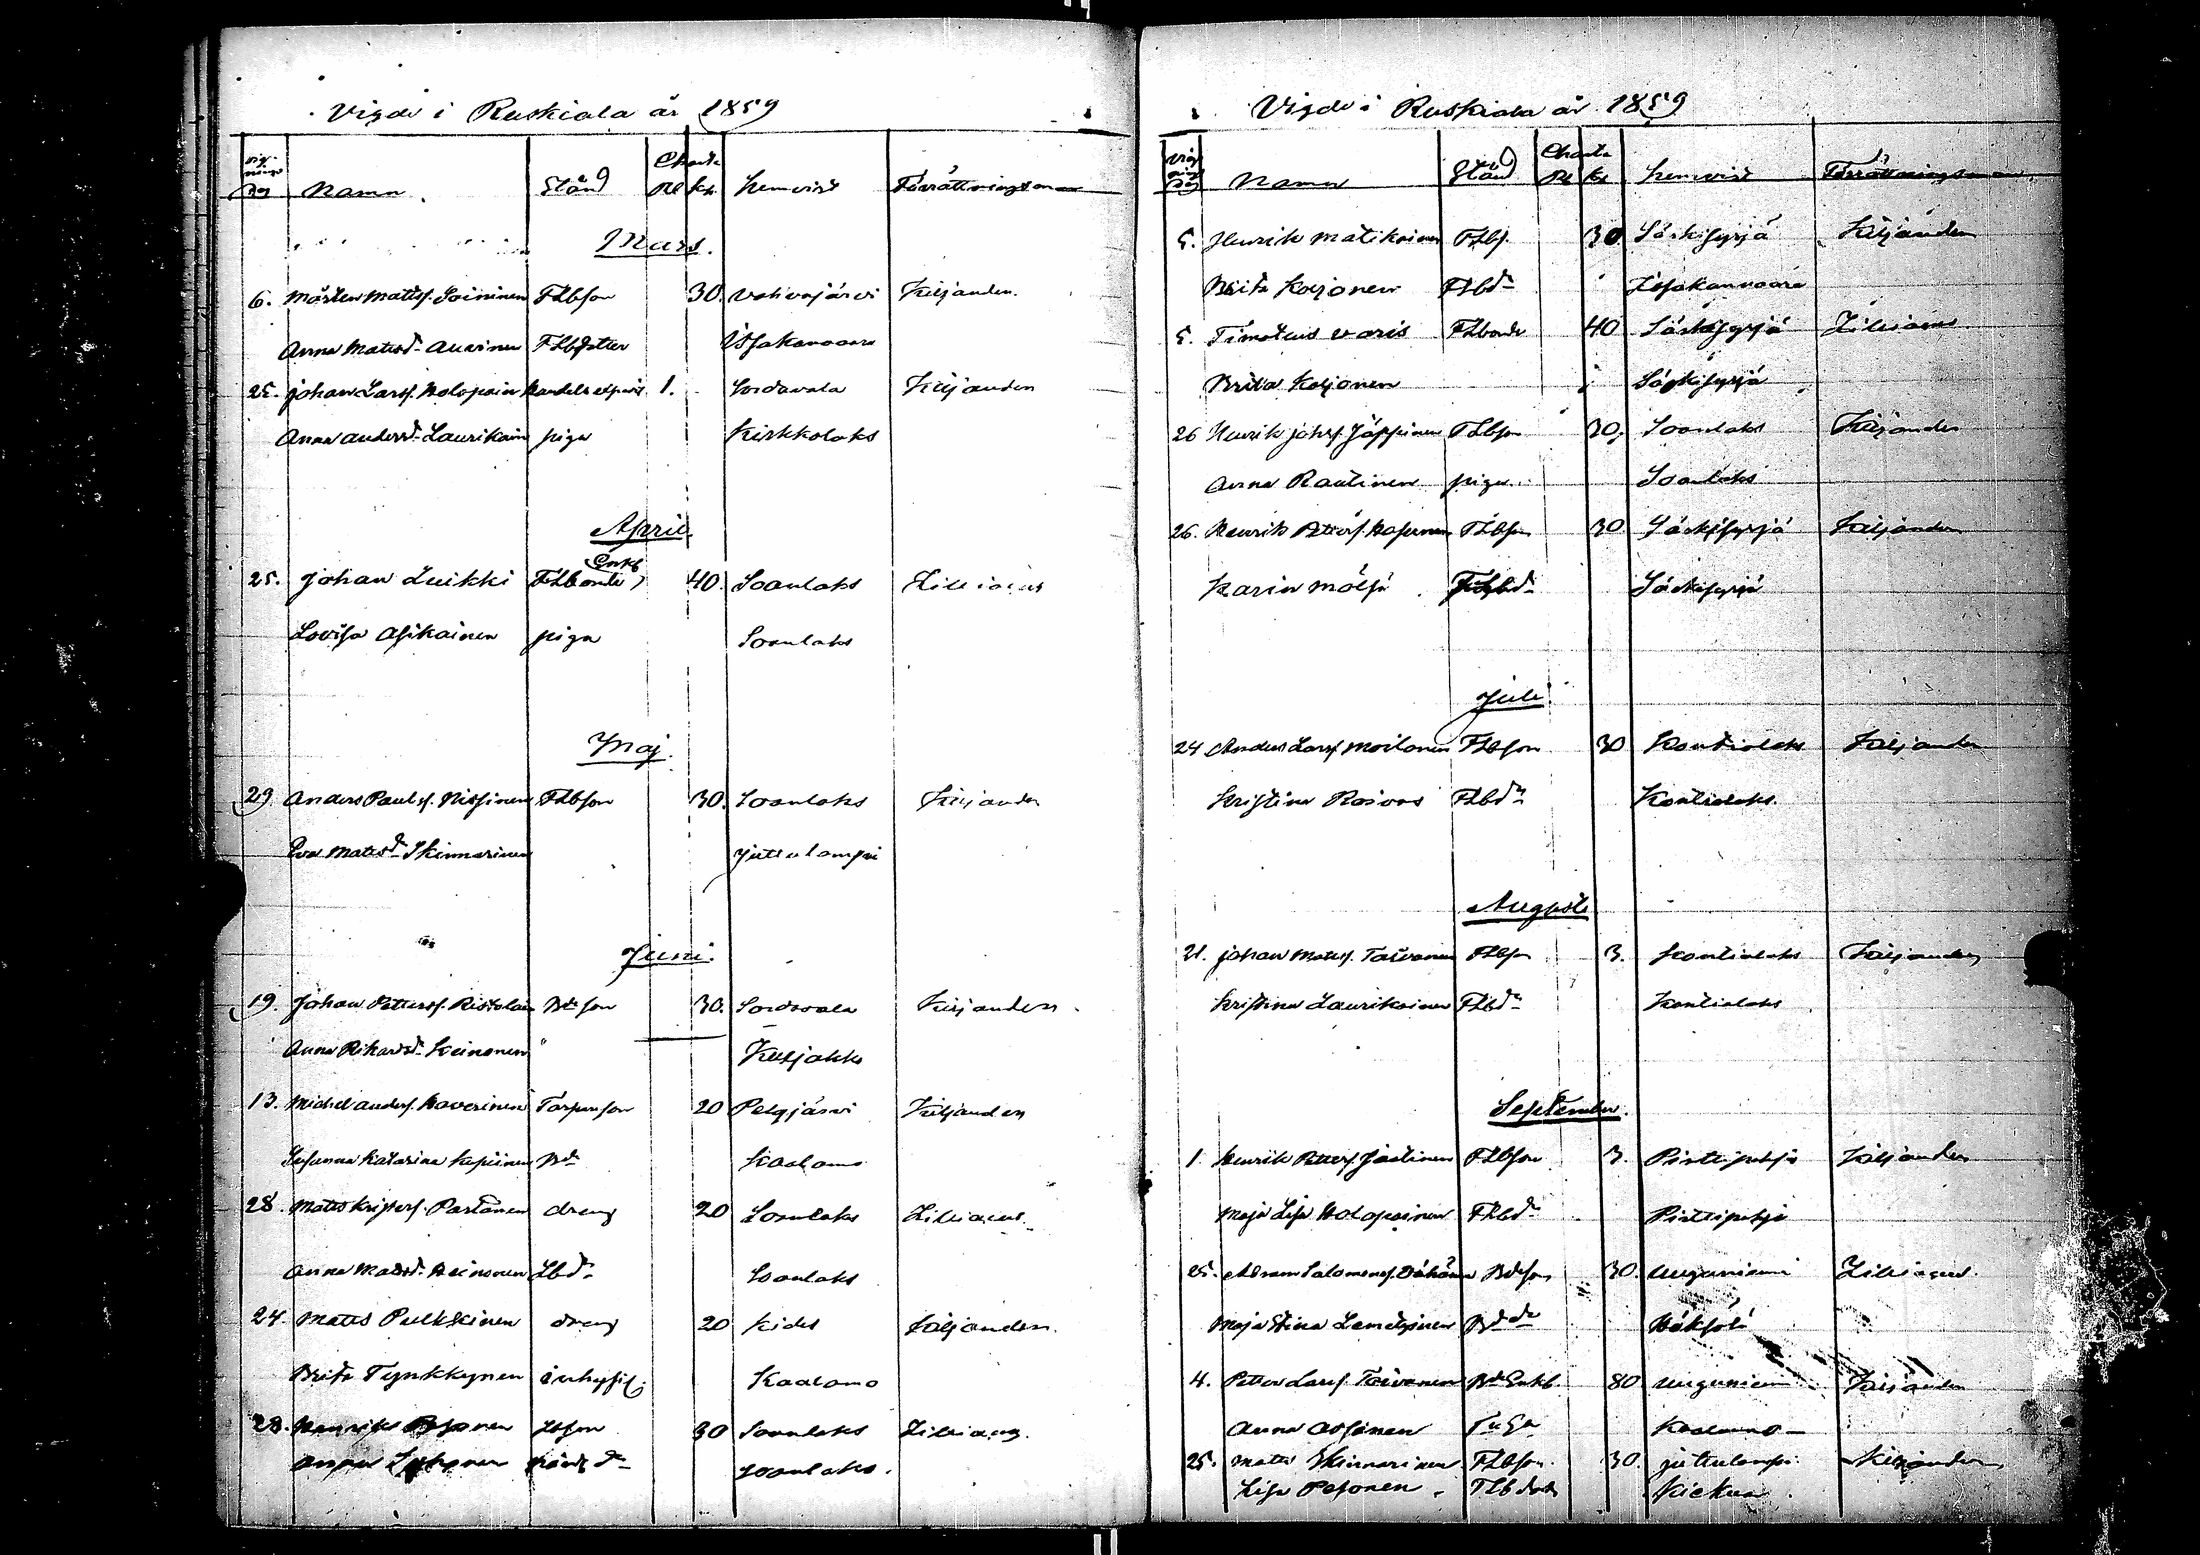 Vigde i Ruskiala år 1859
Vig-nings Dag Namn Stånd Charta Rl kp. Hemvist Förrättningsman
Mars.
6. Mårten Mattsf. Soininen FLbson 30. Vahvajärvi Kiljander.
Anna Matsd. Auvinen FLbdotter Issakanvaara
25. Johan Larsf. Holopain 1. Sordavala Kiljander
Anna Andersd. Laurikain piga Kirkkolaks
April
25. Johan Luikki FLbonde, Enkl 40. Soanlaks Lilliacus
Lovisa Asikainen piga Soanlaks
Maj.
29. Anders Paulsf. Nissinen FLbson 30. Soanlaks Kiljander
Eva Matsd. Skinnarinen Juttulampi
Juni.
19. Johan Pettersf. Ristolain Bdeson 30. Sordavala Kiljander.
Anna Rikardsd. Heinonen "
13. Michel Andersf. Kaverinen Torparson 20 Pelgjärvi Kiljander
Susanna Katarina Bd. Kaalamo
28. Mats Kristersf. Partanen dreng 20 Soanlaks Lilliacus.
Anna Matsd. Heinonen Lbd. Soanlaks
24. Mats Pulkkinen dreng 20 Kides Kiljander.
Brita Tynkkynen inhysil; Kaalamo
28. Henrik Pesonen Lbson 30 Soanlaks Lilliacus.
Anna Soanlaks.
Vigde i Ruskiala år 1859
Vig ning Dag Namn Stånd Charta Rl Kp Hemvist Förrättningsman.
5. Henrik Matikainen FLbf. 30 Särkisyrjä Kiljander
Brita Koljonen FLbd. Issakanvaara
5. Timoteus Varis FLbonde 40 Särkisyrjä Lilliacus.
Brita Koljonen Särkisyrjä
26 Henrik Johsf. Jäppinen FLbson 30. Soanlaks Kiljander
Anna Rautinen piga Soanlaks
26. Henrik Pettersf. FLbson 30 Särkisyrjä Kiljander
Karin Mölsä FLbd. Särkisyrjä
Juli
24 Anders Larsf. Moilanen FLbson 30 Kontiolaks Kiljander
Kristina Roivas FLbd. Kontiolaks.
Augusti
21. Johan Matsf. Toivanen FLbson 3. Kontiolaks Kiljander
Kristina Laurikainen FLbd. Kontiolaks
September.
1. Henrik Pettersf. FLbson 3. Pirttipohja Kiljander
Maja Lisa Holopainen FLbd. Pirttipohja
25. Abram Salomonsf. Bdeson 30. Uuguniemi Lilliacus.
Maja Stina Bdd.
4. Petter Larsf. Toivonen Bd Enkl. 80 Uuguniemi Kiljander
Anna Kaalamo
25. Mats Skinnarinen FLbson. 30. Juttulampi Kiljander
Lisa Pesonen. FLbdott